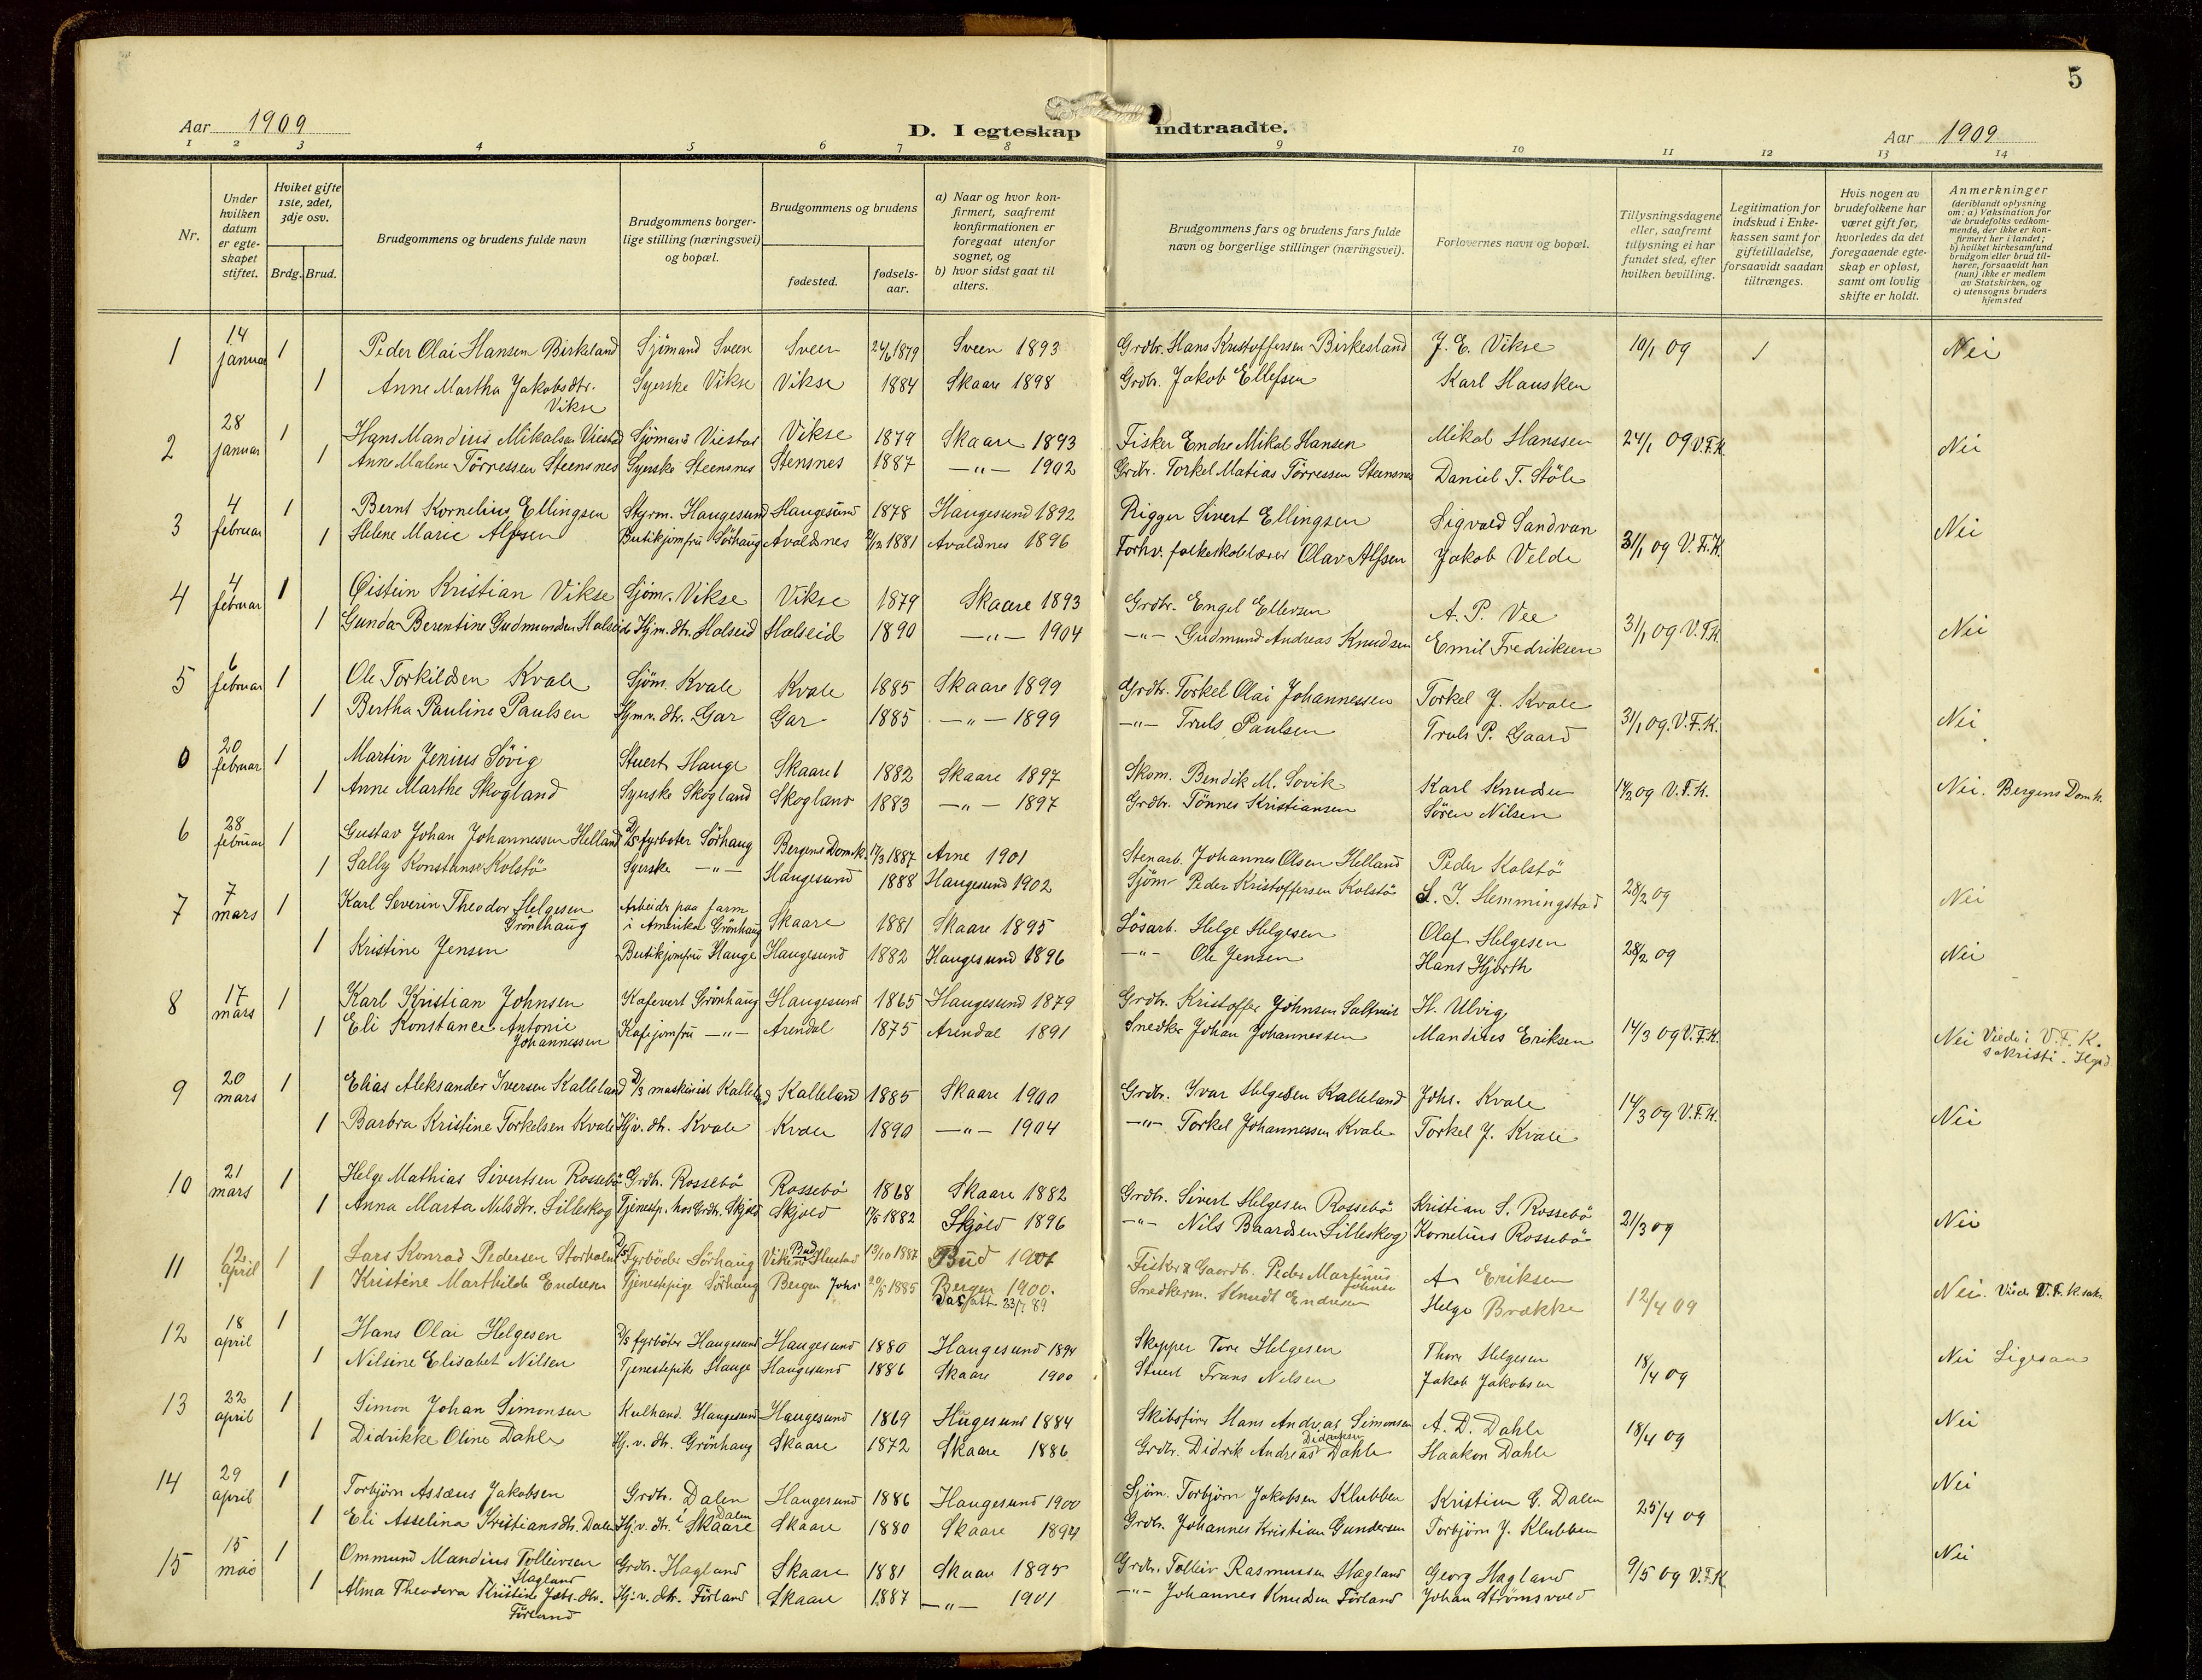 5
Aar 1909
D. I egteskap indtraadte.
Aar 1909
1 2 3 4 5 6 7 8 9 10 11 12 13 14
Nr.
Under hvilken datum er egteskapet stiftet.
Hviket gifte 1ste, 2det, 3dje osv.
Brdg. Brud.
Brudgommens og brudens fulde navn
Brudgommens borgerlige stilling (næringsvei) og bopæl.
Brudgommens og brudens
fødested.
fødselsaar.
a) Naar og hvor konfirmert, saafremt konfirmationen er foregaat utenfor sognet, og
b) hvor sidst gaat til alters.
Brudgommens fars og brudens fars fulde navn og borgerlige stillinger (næringsvei).
Forlovernes navn og bopæl.
Tillysningsdagene eller, saafremt tillysning ei har fundet sted, efter hvilken bevilling.
Legitimation for indskud i Enkekassen samt for giftetilladelse, forsaavidt saadan tiltrænges.
Hvis nogen av brudefolkene har været gift før, hvorledes da det foregaaende egteskap er opløst, samt om lovlig skifte er holdt.
Anmerkninger (deriblandt oplysning om: a) Vaksination for de brudefolks vedkommende, der ikke er konfirmert her i landet; b) hvilket kirkesamfund brudgom eller brud tilhører, forsaavidt han (hun) ikke er medlem av Statskirken, og c) utensogns bruders hjemsted
1 14 januar 1 Peder Olai Hansen Birkeland Sjömand Sveen Sveen 24/6 1879 Sveen 1893 Grdbr. Hans Kristoffersen Birkesland J. E. Vikse 10/1 09 1 Nei
1 Anne Martha Jakobsdtr. Vikse Syerske Vikse Vikse 1884 Skaare 1898 Grdbr. Jakob Ellefsen Karl Hausken
2 28 januar 1 Hans Mandius Mikalsen Viestad Sjömand Viestad Vikse 1879 Skaare 1893 Fisker Endre Mikal Hansen Mikal Hanssen 24/1 09 V.F.K. Nei
1 Anne Malene Törressen Steensnes Syerske Steensnes Stensnes 1887 —"— 1902 Grdbr. Torkel Matias Törressen Steensnes Daniel T. Stöle
3 4 februar 1 Bernt Kornelius Ellingsen Styrm. Haugesund Haugesund 1878 Haugesund 1892 Rigger Sivert Ellingsen Sigvald Sandvan 31/1 09 V.Fr.K. Nei
1 Helene Marie Alfsen Butikjomfru Sörhaug Avaldsnes 1881 Avaldsnes 1896 Forhv. folkeskolelærer Olav Alfsen Jakob Velde
4 4 februar 1 Øistein Kristian Vikse Sjöm. Vikse Vikse 1879 Skaare 1893 Grdbr. Engel Ellevsen A. P. Vee 31/1 09 V.F.K. Nei
1 Gunda Berentine Gudmundsen Halseid Hjm. dtr. Halseid Halseid 1890 —"— 1904 —"— Gudmund Andreas Knudsen Emil Fredriksen
5 6 februar 1 Ole Torkildsen Kvale Sjöm. Kvale Kvale 1885 Skaare 1899 Grdbr. Torkel Olai Johannessen Torkel J. Kvale 31/1 09. V.F.K. Nei
1 Bertha Pauline Paulsen Hjmv. dtr. Gar Gar 1885 —"— 1899 —"— Truls Paulsen Truls P. Gaard
0 20 februar 1 Martin Jenius Sövig Stuert Hauge Skaare 1882 Skaare 1897 Skom. Bendik M. Sovik Karl Knudsen 14/2 09 V.F.K. Nei. Bergens Domk.
1 Anne Marthe Skogland Syerske Skogland Skogland 1883 —"— 1897 Grdbr. Tönnes Kristiansen Sören Nilsen
6 28 februar 1 Gustav Johan Johannessen Helland D/S fyrböter Sörhaug Bergens Domk. 17/3 1887 Arne 1901 Stenarb. Johannes Olsen Helland Peder Kolstö 28/2 09 Nei
1 Sally Konstanse Kolstö Syerske —"— Haugesund 1888 Haugesund 1902 Sjöm Peder Kristoffersen Kolstö S. J. Hemmingstad
7 7 mars 1 Karl Severin Theodor Helgesen Grönhaug Arbeider paa farm i Amerika Grönhaug Skaare 1881 Skaare 1895 Lösarb. Helge Helgesen Olaf Helgesen 28/2 09 Nei
1 Kristine Jensen Butikjomfru Hauge Haugesund 1882 Haugesund 1896 —"— Ole Jensen Hans Hjorth
8 17 mars 1 Karl Kristian Johnsen Kafevert Grönhaug Haugesund 1865 Haugesund 1879 Grdbr. Kristoffer Johnsen H. Ulvig 14/3 09 V.F.K. Nei Viede i V.F.K. sakristi.
1 Eli Konstance Antonie Johannessen Kafejomfru —"— Arendal 1875 Arendal 1891 Snedker Johan Johannessen Mandius Eriksen
9 20 mars 1 Elias Aleksander Iversen Kalleland D/S maskinist Kalleland Kalleland 1885 Skaare 1900 Grdbr. Ivar Helgesen Kalleland Johs. Kvale 14/3 09 V.F.K. Nei
1 Barbra Kristine Torkelsen Kvale Hjv. dtr. Kvale Kvale 1890 —"— 1904 —"— Torkel Johannessen Kvale Torkel J. Kvale
10 21 mars 1 Helge Mathias Sivertsen Rossebö Grdbr. Rossebö Rossebö 1868 Skaare 1882 Grdbr. Sivert Helgesen Rossebö Kristian S. Rossebö 21/3 09 Nei
1 Anna Marta Nilsdtr. Lilleskog Tjenestp. hos Grdbr. Skjold Skjold 17/5 1882 Skjold 1896 —"— Nils Baardsen Lilleskog Kornelius Rossebö
11 12 april 1 Lars Konrad Pedersen Storholm D/S Fyrböder Sörhaug Bud 13/10 1887 Bud 1901 Fisker & Gaardb. Peder Martinus Johnsen A Eriksen 12/4 09 Nei. Viede V.F.K. sakr.
1 Kristine Marthilde Endresen Tjenestepige Sörhaug Bergen Johs 20/5 1885 Bergen 1900. Snedkerm. Knudt Endresen Helge Brække
12 18 april 1 Hans Olai Helgesen D/S fyrböter Haugesund Haugesund 1880 Haugesund 1894 Skepper Tore Helgesen Thore Helgesen 18/4 09 Nei Ligesaa
1 Nilsine Elisabet Nilsen Tjenestepike Hauge Haugesund 1886 Skaare 1900 Stuert Frans Nilsen Jakob Jakobsen
13 22 april 1 Simon Johan Simonsen Kulhand. Haugesund Haugesund 1869 Hugesund 1884 Skibsförer Hans Andreas Simonsen A. D. Dahle 18/4 09 Nei
1 Didrikke Oline Dahle Hj. v. dtr. Grönhaug Skaare 1872 Skaare 1886 Grdbr. Didrik Andreas Didriksen Dahle Haakon Dahle
14 29 april 1 Torbjörn Assæus Jakobsen Grdbr. Dalen Haugesund 1886 Haugesund 1900 Sjöm. Torbjörn Jakobsen Klubben Kristian G. Dalen 25/4 09 Nei
1 Eli Asselina Kristiansdtr. Dalen Hj. v. dtr. i Dalen Skaare Skaare 1880 Skaare 1894 Grdbr. Johannes Kristian Gundersen Torbjörn J. Klubben
15 15 mai 1 Ommund Mandius Tolleivsen Hagland Grdbr. Hagland Skaare 1881 Skaare 1895 Grdbr. Tolleiv Rasmussen Hagland Georg Hagland 9/5 09 V.F.K Nei
1 Alma Theodora Kristine Johs. dtr. Förland Hj. v. dtr. Förland Skaare 1887 —"— 1901 —"— Johannes Knudsen Förland Johan Strömsvold